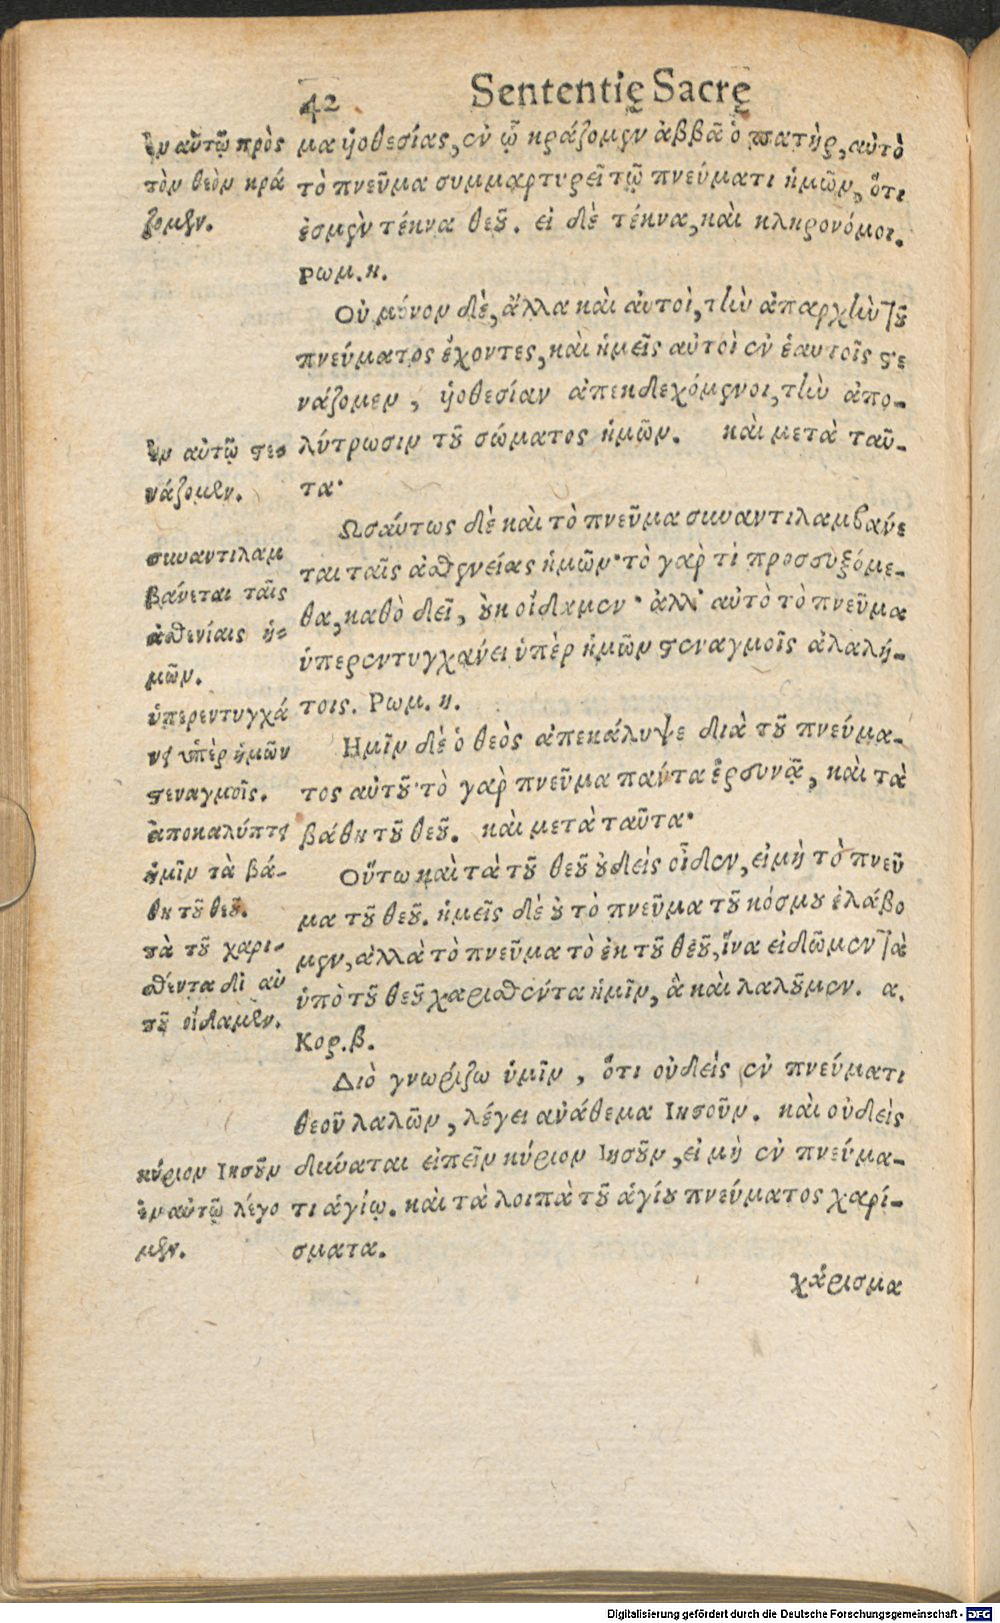 42
Sententię Sacrę
ἐν αὐτῷ πρὸς
τὸν θεὸν κρά
ζομεν.
μα ὑοθεσίας, ἐν ᾧ κράζομεν ἀββᾶ ὁ πατὴρ, αὐτὸ
τὸ πνεῦμα συμμαρτυρεῖ τῷ πνεύματι ἡμῶν, ὅτι
ἐσμὲν τέκνα θεοῦ. εἰ δὲ τέκνα, καὶ κληρονόμοι.
Ρωμ. η.
Οὐ μόνον δὲ, ἄλλα καὶ αὐτοὶ, τὴν ἀπαρχὴν τοῦ
πνεύματος ἔχοντες, καὶ ἡμεῖς αὐτοὶ ἐν ἑαυτοῖς στε
νάζομεν, ὑοθεσίαν ἀπεκδεχόμενοι, τὴν ἀπο-
λύτρωσιν τοῦ σώματος ἡμῶν. καὶ μετὰ ταῦ-
τα·
ἐν αὐτῷ στε-
νάζομεν.
Ωσάυτως δὲ καὶ τὸ πνεῦμα συναντιλαμβανέ
ται ταῖς ἀσθενείας ἡμῶν· τὸ γαρ τὶ προσευξόμε-
θα, καθὸ δεῖ, οὐκ οἴδαμεν· ἀλλ' αὐτὸ τὸ πνεῦμα
ὑπερεντυγχάνει ὑπὲρ ἡμῶν στεναγμοῖς ἀλαλή-
τοις. Ρωμ. η.
συναντιλαμ
βάνεται ταῖς
ἀσθενίαις ἡ-
μῶν.
ὑπερεντυγχά
νει ὑπὲρ ἡμῶν
στεναγμοῖς.
ἀποκαλύπτει
ἡμῖν τὰ βά-
θη τοῦ θεοῦ.
τὰ τοῦ χαρι-
σθέντα δι αὐ
τοῦ οἴδαμεν.
Ημῖν δὲ ὁ θεὸς ἀπεκάλυψε διὰ τοῦ πνεύμα-
τος αὐτοῦ· τὸ γὰρ πνεῦμα πάντα ἐρευνᾷ, καὶ τὰ
βάθη τοῦ θεοῦ. καὶ μετὰ ταῦτα·
Οὕτω καὶ τὰ τοῦ θεοῦ οὐδεὶς οἶδεν, εἰ μὴ τὸ πνεῦ
μα τοῦ θεοῦ. ἡμεῖς δὲ οὐ τὸ πνεῦμα τοῦ κόσμου ἐλάβο
μεν, ἀλλὰ τὸ πνεῦμα τὸ ἐκ τοῦ θεοῦ, ἵνα εἰδῶμεν τὰ
ὑπὸ τοῦ θεοῦ χαρισθέντα ἡμῖν, ἃ καὶ λαλοῦμεν. α.
Κορ. β.
Διὸ γνωρίζω ὑμῖν, ὅτι οὐδεὶς ἐν πνεύματι
θεοῦ λαλῶν, λέγει ἀνάθεμα Ιησοῦν. καὶ οὐδεὶς
δύναται εἰπεῖν κύριον Ιησοῦν, εἰ μὴ ἐν πνεύμα-
τι ἁγίῳ. καὶ τὰ λοιπὰ τοῦ ἁγίου πνεύματος χαρί-
σματα.
κύριον Ιησοῦν
ἐν αὐτῷ λέγο
μεν.
χάρισμα
Digitalisierung gefördert durch die Deutsche Forschungsgemeinschaft - DFG